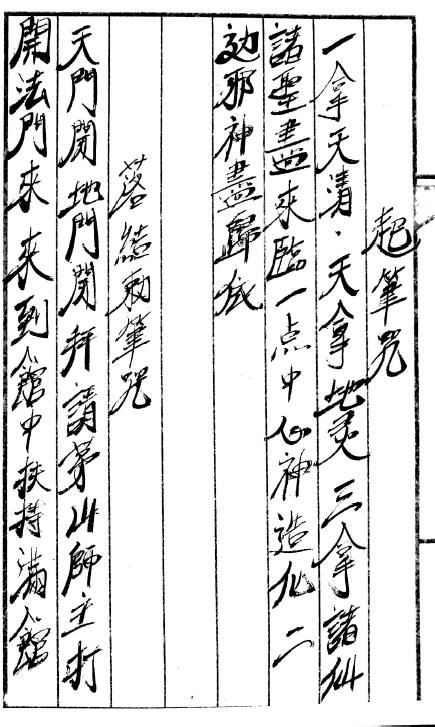 起筆咒
一拿天清、天拿地灵三拿諸仙
諸聖盡來臨一点中心神造化二
边邪神盡歸依
落結勅筆咒
天門開地門開拜請茅山師主打
開法門來來到入館中扶持滿入館